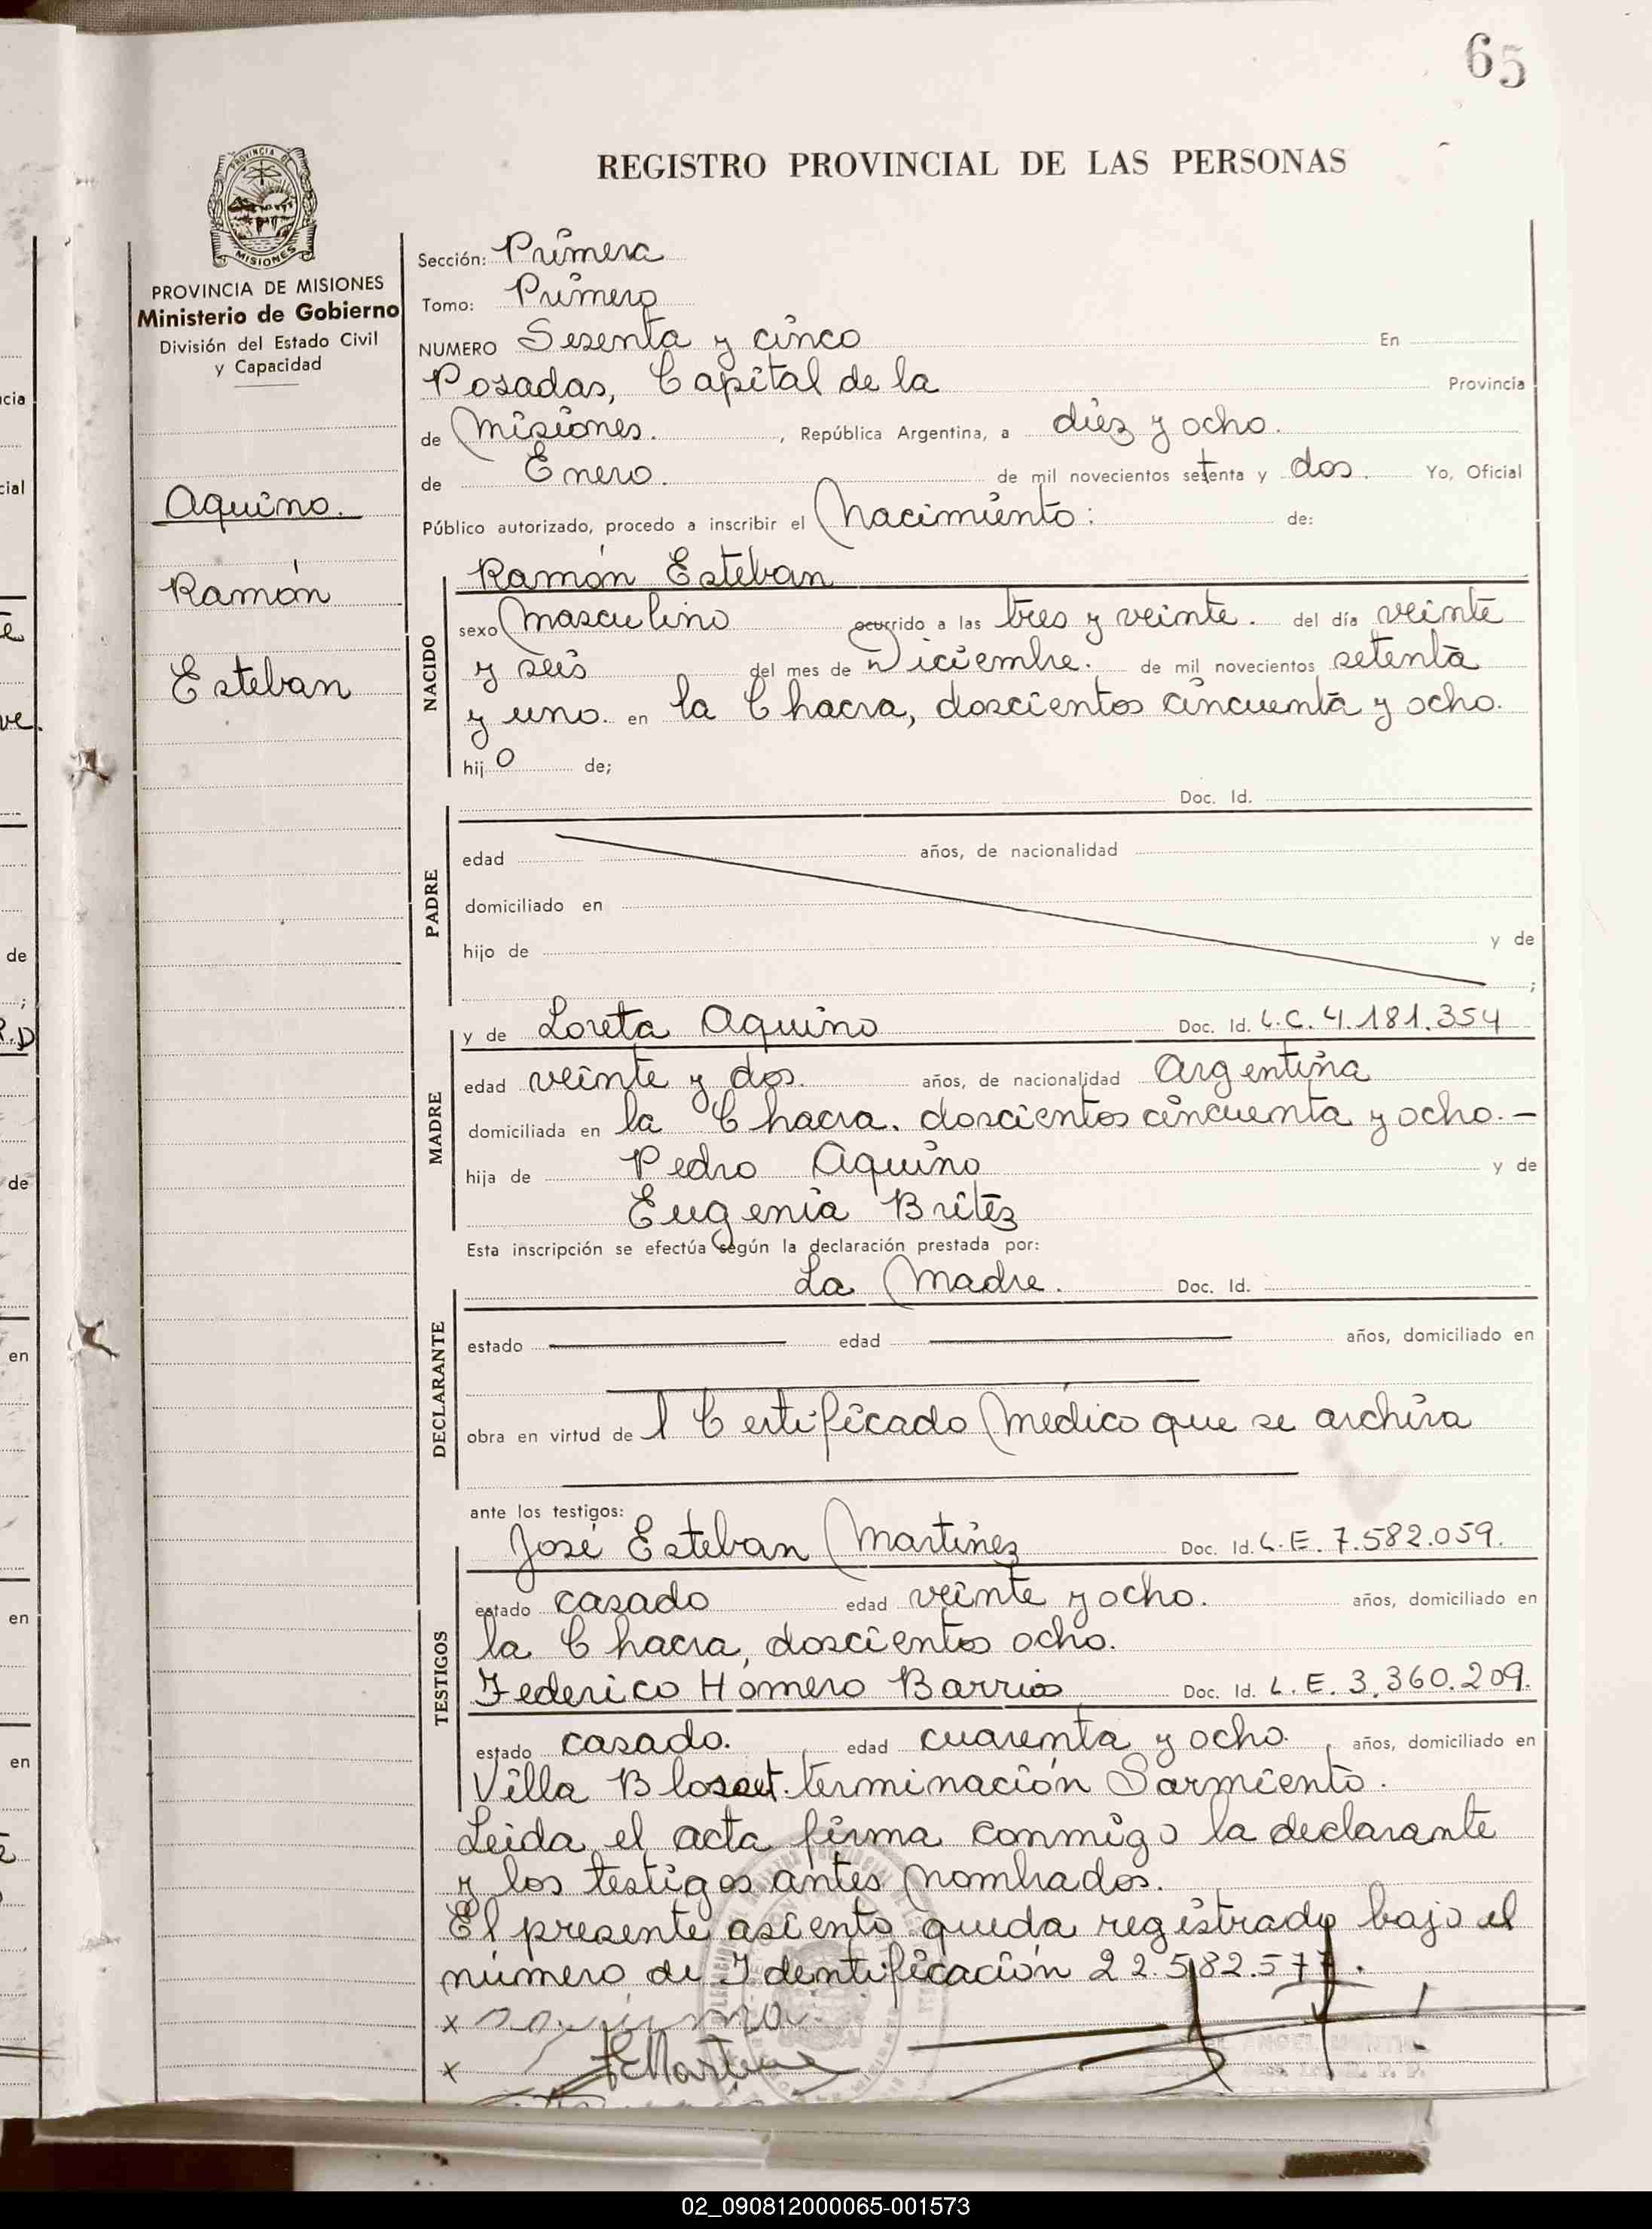 65
REGISTRO PROVINCIAL DE LAS PERSONAS
PROVINCIA DE
MISIONES
PROVINCIA DE MISIONES
Ministerio de Gobierno
División del Estado Civil
y Capacidad
Aquino.
Ramón
Esteban
Sección: Primera
Tomo: Primero
NUMERO Sesenta y cinco En
Posadas, Capital de la Provincia
de Misiones. , República Argentina, a diez y ocho.
de Enero. de mil novecientos setenta y dos. Yo, Oficial
Público autorizado, procedo a inscribir el Nacimiento: de:
Ramón Esteban
NACIDO
sexo Masculino ocurrido a las tres y veinte. del día veinte
y seis del mes de Diciembre. de mil novecientos setenta
y uno. en la Chacra, doscientos cincuenta y ocho.
hijo de;
Doc. Id.
PADRE
edad años, de nacionalidad
domiciliado en
hijo de y de
;
y de Loreta Aquino Doc. Id. L.C. 4.181.354
MADRE
edad veinte y dos. años, de nacionalidad Argentina
domiciliada en la Chacra. doscientos cincuenta y ocho.-
hija de Pedro Aquino y de
Eugenia Britez
Esta inscripción se efectúa según la declaración prestada por:
La Madre. Doc. Id.
DECLARANTE
estado edad años, domiciliado en
obra en virtud de l Certificado Médico que se archiva
ante los testigos:
José Esteban Martinez Doc. Id. L.E. 7.582.059.
TESTIGOS
estado casado edad veinte y ocho. años, domiciliado en
la Chacra, doscientos ocho.
Federico Homero Barrios Doc. Id. L.E. 3.360.209.
estado casado. edad cuarenta y ocho. años, domiciliado en
Villa Blosset. terminación Sarmiento.
Leida el acta firma conmigo la declarante
y los testigos antes nombrados.
El presente asiento queda registrado bajo el
número de Identificación 22.582.577.
x
x
02_090812000065-001573